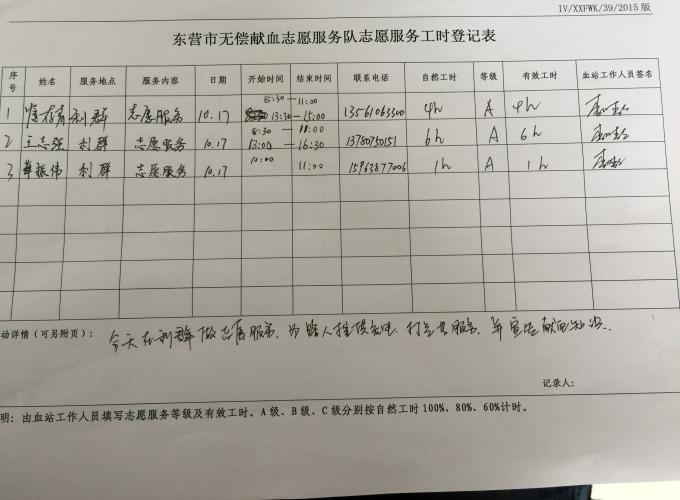 IV/XXFWK/39/2015 版
东营市无偿献血志愿服务队志愿服务工时登记表
序号 姓名 服务地点 服务内容 日期 开始时间 结束时间 联系电话 自然工时 等级 有效工时 血站工作人员签名
8:30 — 11:00
1 利群 志愿服务 10.17 13:30 — 15:00 13561063300 4h A 4h
8:30 — 11:00
2 王志强 利群 志愿服务 10.17 13:00 — 16:30 13780750151 6h A 6h
3 振伟 利群 志愿服务 10.17 10:00 11:00 15963877006 1h A 1h
动详情（可另附页）： 今天在利群做志愿服务，为路人提供 服务，宣传献血知识.
记录人：
明：由血站工作人员填写志愿服务等级及有效工时。A 级、B 级、C 级分别按自然工时 100%、80%、60%计时。